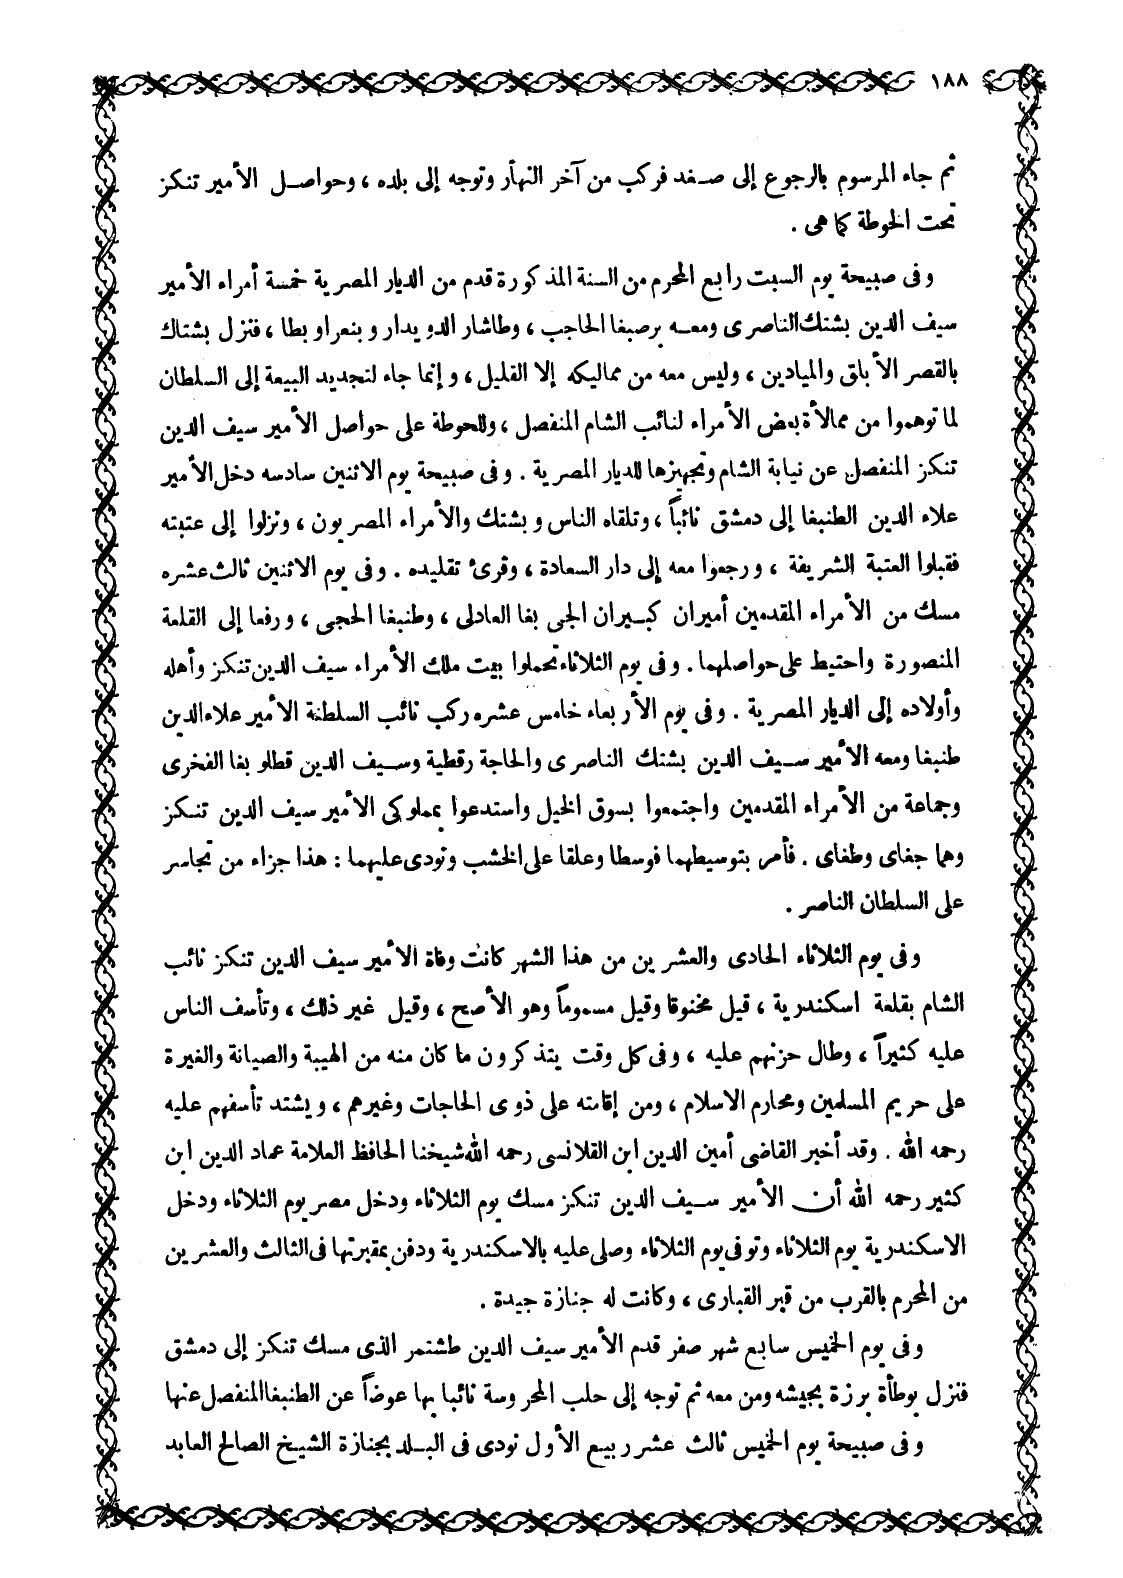 ١٨٨
ثم جاء المرسوم بالرجوع إلى صفد فركب من آخر النهار وتوجه إلى بلده ، وحواصل الأمير تنكز
تحت الحوطة كما هى .
وفى صبيحة يوم السبت رابع المحرم من السنة المذكورة قدم من الديار المصرية خمسة أمراء الأمير
سيف الدين بشتك الناصرى ومعه برصبغا الحاجب ، وطاشار الدويدار وبنعرا وبطا ، فنزل بشتاك
بالقصر الأبلق والميادين ، وليس معه من مماليكه إلا القليل ، وإنما جاء لتجديد البيعة إلى السلطان
لما توهموا من ممالأة بعض الأمراء لنائب الشام المنفصل ، وللحوطة على حواصل الأمير سيف الدين
تنكز المنفصل عن نيابة الشام وتجهيزها للديار المصرية . وفى صبيحة يوم الاثنين سادسه دخل الأمير
علاء الدين الطنبغا إلى دمشق نائباً ، وتلقاه الناس وبشتك والأمراء المصريون ، ونزلوا إلى عتبته
فقبلوا العتبة الشريفة ، ورجعوا معه إلى دار السعادة ، وقرئ تقليده . وفى يوم الاثنين ثالث عشره
مسك من الأمراء المقدمين أميران كبيران الجى بغا العادلى ، وطنبغا الحجى ، ورفعا إلى القلعة
المنصورة واحتيط على حواصلهما . وفى يوم الثلاثاء تحملوا بيت ملك الأمراء سيف الدين تنكز وأهله
وأولاده إلى الديار المصرية . وفى يوم الأربعاء خامس عشره ركب نائب السلطنة الأمير علاء الدين
طنبغا ومعه الأمير سيف الدين بشتك الناصرى والحاجة رقطية وسيف الدين قطلوبغا الفخرى
وجماعة من الأمراء المقدمين واجتمعوا بسوق الخيل واستدعوا بمملوكى الأمير سيف الدين تنكز
وهما جغاى وطغاى . فأمر بتوسيطهما فوسطا وعلقا على الخشب ونودى عليهما : هذا جزاء من تجاسر
على السلطان الناصر .
وفى يوم الثلاثاء الحادى والعشرين من هذا الشهر كانت وفاة الأمير سيف الدين تنكز نائب
الشام بقلعة اسكندرية ، قيل مخنوقا وقيل مسموماً وهو الأصح ، وقيل غير ذلك ، وتأسف الناس
عليه كثيراً ، وطال حزنهم عليه ، وفى كل وقت يتذكرون ما كان منه من الهيبة والصيانة والغيرة
على حريم المسلمين ومحارم الاسلام ، ومن إقامته على ذوى الحاجات وغيرهم ، ويشتد تأسفهم عليه
رحمه الله . وقد أخبر القاضى أمين الدين ابن القلانسى رحمه الله شيخنا الحافظ العلامة عماد الدين ابن
كثير رحمه الله أن الأمير سيف الدين تنكز مسك يوم الثلاثاء ودخل مصر يوم الثلاثاء ودخل
الاسكندرية يوم الثلاثاء وتوفى يوم الثلاثاء وصلى عليه بالاسكندرية ودفن بمقبرتها فى الثالث والعشرين
من المحرم بالقرب من قبر القبارى ، وكانت له جنازة جيدة .
وفى يوم الخميس سابع شهر صفر قدم الأمير سيف الدين طشتمر الذى مسك تنكز إلى دمشق
فنزل بوطأة برزة بجيشه ومن معه ثم توجه إلى حلب المحروسة نائبا بها عوضاً عن الطنبغا المنفصل عنها
وفى صبيحة يوم الخميس ثالث عشر ربيع الأول نودى فى البلد بجنازة الشيخ الصالح العابد